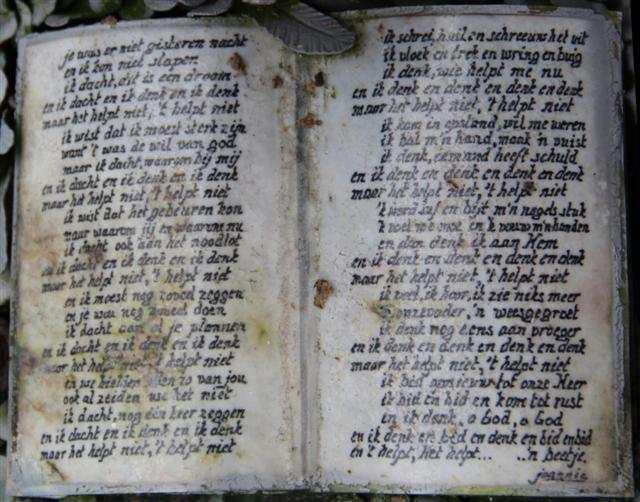 je was er niet gisteren nacht
en ik kon niet slapen
ik dacht, dit is een droom
en ik dacht en ik denk en ik denk
maar het helpt niet, 't helpt niet
ik wist dat ik moest sterk zijn
want 't was de wil van god
maar ik dacht, waarom hij mij
en ik dacht en ik denk en ik denk
maar het helpt niet, 't helpt niet
ik wist dat het gebeuren kon
maar waarom jij en waarom nu
ik dacht ook aan het noodlot
en ik dacht en ik denk en ik denk
maar het helpt niet, 't helpt niet
en ik moest nog zoveel zeggen
en je zou nog zoveel doen
ik dacht aan al je plannen
en ik dacht en ik denk en ik denk
maar het helpt niet, 't helpt niet
en we hielden zo van jou
ook al zeiden we het niet
ik dacht, nog één keer zeggen
en ik dacht en ik denk en ik denk
maar het helpt niet, 't helpt niet
ik schrei, huil en schreeuw het uit
ik vloek en trek en wring en buig
ik denk, wie helpt me nu
en ik denk en denk en denk en denk
maar het helpt niet, 't helpt niet
ik kom in opstand, wil me weren
ik bal m'n hand, maak 'n vuist
ik denk, iemand heeft schuld
en ik denk en denk en denk en denk
maar het helpt niet, 't helpt niet
'k word suf en bijt m'n nagels stuk
'k voel me moe en ik vouw m'n handen
en dan denk ik aan Hem
en ik denk en denk en denk en denk
maar het helpt niet, 't helpt niet
ik voel, ik hoor, ik zie niks meer
'n onzevader, 'n weesgegroet
ik denk nog eens aan vroeger
en ik denk en denk en denk en denk
maar het helpt niet, 't helpt niet
ik bid opnieuw tot onze Heer
ik bid en bid en kom tot rust
en ik denk, o God, o God
en ik denk en bid en denk en bid en bid
en 't helpt, het helpt... ..'n beetje.
jeannie